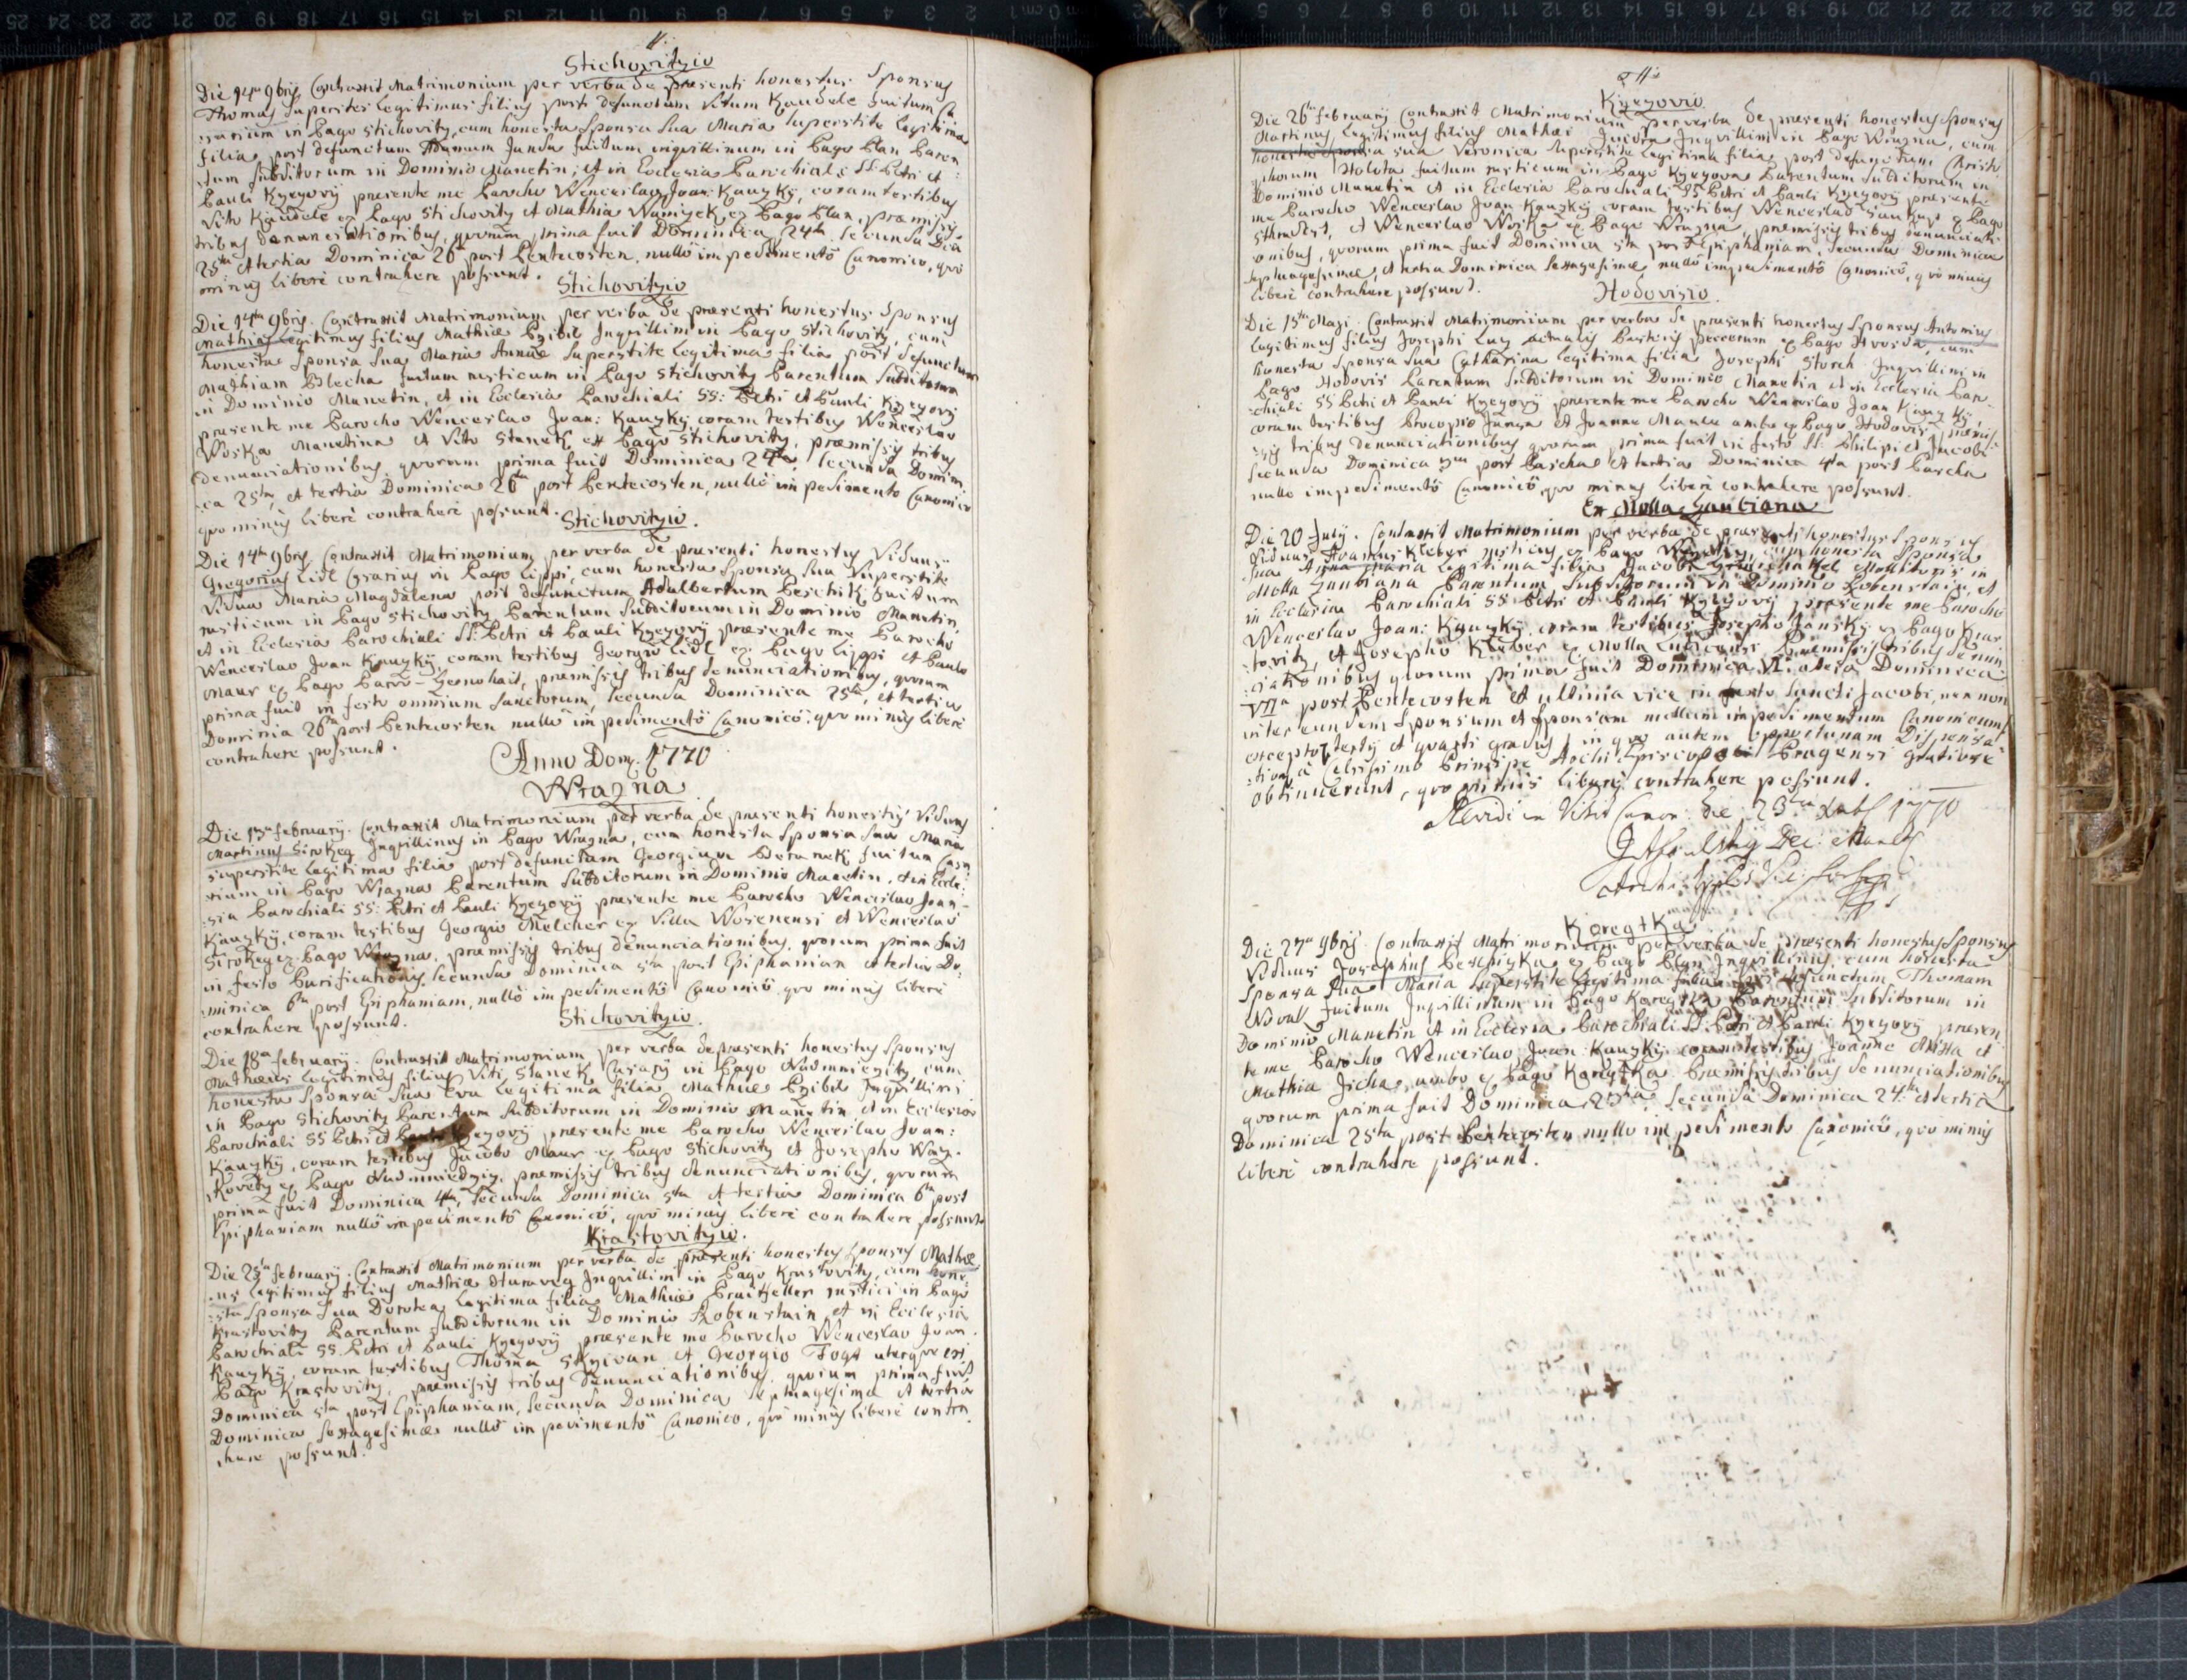 Stichovityio
Die 14ta 9bris Contraxit Matrimonium per verba de praesenti honestus Sponsus
Thomas Superstes legitimus filius post defunctum Vitum Kaudele fuitum Ca
sarium in Pago Stichovity, cum honesta Sponsa Sua Maria Superstite legitima
filia post defunctum Adamum Junda fuitum inquillinum in Pago Plan Paren
tum Subditorum in Dominio Manetin, et in Ecclesia Parochiali SS: Petri et
Pauli Kyegovij praesente me Parocho Wenceslao Joan: Kauzkÿ, coram testibus
Vito Kaudele ex Pago Stichovity et Mathia Wamiyek ex Pago Plan, praemissis
tribus denunciationibus, quorum prima fuit Dominica 24ta Secunda
25ta et tertia Dominica 26 post Pentecosten, nullô impedimentô Canonico, quô
minus liberè contrahere possunt.
Stichovityio
Die 14ta 9bris. Contraxit Matrimonium per verba de praesenti honestus Sponsus
Mathias legitimus filius Mathiae Pzibil Inquillini in Pago Stichovity, cum
honesta Sponsa Sua Maria Annae Superstite legitima filia post defunctum
Mathiam Blecha fuitum rusticum in Pago Stichovity Parentum Subditorum
in Dominio Manetin, et in Ecclesia Parochiali SS: Petri et Pauli Kyegovij
praesente me Parocho Wenceslao Joan: Kauzkÿ coram testibus Wenceslao
Woska Manetina et Vito Stanek ex Pago Stichovity, praemissis tribus
denunciationibus quorum prima fuit Dominica 24ta, Secunda Domini
ca 25ta, et tertia Dominica 26ta post Pentecosten, nullô impedimento Canonico
quo minus liberè contrahere possunt.
Stichovityio.
Die 14ta 9bris Contraxit Matrimonium per verba de praesenti honestus Viduus
Gregorius Lidl Casarius in Pago Lippi, cum honesta Sponsa Sua Superstite
Vidua Maria Magdalena post defunctum Adalbertum Peschik fuitum
rusticum in Pago Stichovity Parentum Subditorum in Dominio Manetin,
et in Ecclesia Parochiali SS: Petri et Pauli Kyegovij praesente me Parocho
Wenceslao Joan Kauzkÿ, coram testibus Georgio Lidl ex Pago Lippi et Paulo
Maur ex Pago Parvo-Gernohait, praemissis tribus denunciationibus, quorum
prima fuit in festo omnium Sanctorum, Secunda Dominica 25ta, et tertia
Dominica 26ta post Pentecosten nullô impedimentô Canonicô, quo minus liberè
contrahere possunt.
Anno Dom. 1770
Wrazna
Die 13a february. Contraxit Matrimonium per verba de praesenti honestus Viduus
Martinus Sirokey Inquillinus in Pago Wrazna, cum honesta Sponsa Sua Maria
superstite legitima filia post defunctum Georgium Beranek fuitum Casa
rium in Pago Wrazna Parentum Subditorum in Dominio Manetin, et in Eccle-
sia Parochiali SS: Petri et Pauli Kyegovij praesente me Parocho Wenceslao Joan
Kauzkÿ, coram testibus Georgio Melcher ex Villa Wosenensi et Wenceslao
Sirokey ex Pago Wrazna, praemissis tribus denunciationibus, quorum prima fuit
in festo Purificationis, Secunda Dominica 5ta post Epiphaniam et tertia Do-
minica 6ta post Epiphaniam, nullô impedimentô Canonicô quo minus liberè
contrahere possunt.
Stichovityio.
Die 18a february. Contraxit Matrimonium per verba de praesenti honestus Sponsus
Mathaeus legitimus filius Viti Stanek Casarij in Pago Nadmniezity cum
honesta Sponsa Sua Eva legitima filia Mathiae Pzibil Inquillini
in Pago Stichovity Parentum Subditorum in Dominio Manetin, et in Ecclesia
Parochiali SS Petri et Pauli Kyegovij praesente me Parocho Wenceslao Joan:
Kauzkÿ, coram testibus Jacobo Maur ex Pago Stichovity et Josepho
ex Pago praemissis tribus denunciationibus, quorum
prima fuit Dominica 4ta, Secunda Dominica 5ta et tertia Dominica 6ta post
Epiphaniam nullô impedimentô Canonicô, quô minus liberè contrahere possunt
Krastovityio.
Die 25ta february. Contraxit Matrimonium per verba de praesenti honestus Sponsus Mathae
us legitimus filius Mathiae Huraveg Inquillini in Pago Krastovity, cum hone
sta Sponsa Sua Dorothea legitima filia Mathiae Prautzeller rustici in Pago
Krastovity Parentum Subditorum in Dominio Robenstain, et in Ecclesia
Parochiali SS. Petri et Pauli Kyegovij praesente me Parocho Wenceslao Joan.
Kauzkÿ, coram testibus Thoma Skyivan et Georgio Fogt uterque ex
Pago Krastovity, praemissis tribus denunciationibus, quorum prima fuit
Dominica 5ta post Epiphaniam, Secunda Dominica Septuagesimae et tertia
Dominica Sexagesimae nullô impedimentô Canonico, quô minus liberè contra
here possunt.
Kyegovio
Die 26ta february Contraxit Matrimonium per verba de praesenti honestus Sponsus
Martinus legitimus filius Mathaei Inquillini in Pago Wrazna, cum
honesta Sponsa sua Veronica Superstite legitima filia post defunctum Christo
phorum Holota fuitum rusticum in Pago Kyegova Parentum Subditorum in
Dominio Manetin et in Ecclesia Parochiali SS Petri et Pauli Kyegovij praesente
me Parocho Wenceslao Joan Kauzkÿ coram testibus Wenceslao ex Pago
et Wenceslao Woska ex Pago Wrazna, praemissis tribus denunciati-
onibus, quorum prima fuit Dominica 5ta post Epiphaniam, Secunda Dominica
Septuagesimae, et tertia Dominica Sexagesimae nullô impedimentô Canonicô, quô minus
liberè contrahere possunt.
Hodovisio.
Die 15ta Maji. Contraxit Matrimonium per verba de praesenti honestus Sponsus Antonius
legitimus filius Josephi Luy actualis Pastoris pecorum ex Pago Hvosda, cum
honesta Sponsa Sua Catharina legitima filia Josephi Storch Inquillini in
Pago Hodovis Parentum Subditorum in Dominio Manetin et in Ecclesia Paro-
chiali SS Petri et Pauli Kyegovij praesente me Parocho Wenceslao Joan Kauzkÿ,
coram testibus Procopio Junga et Joanne Maule ambo ex Pago Hodovis praemis-
sis tribus denunciationibus quorum prima fuit in festo SS. Philipi et Jacobi
Secunda Dominica 3ta post Pascha et tertia Dominica 4ta post Pascha
nullo impedimentô Canonicô, quo minus liberè contrahere possunt.
Ex Molla Gantiana
Die 20 July. Contraxit Matrimonium per verba de praesenti honestus Sponsus
Viduus Kleber rusticus ex Pago cum honesta Sponsa
Sua Anna Maria legitima filia Jacobi Molitoris in
Molla Gantiana Parentum Subditorum in Dominio Robenstain, et
in Ecclesia Parochiali SS Petri et Pauli Kyegovij praesente me Parocho
Wenceslao Joan: Kauzkÿ, coram testibus Josepho Janskÿ ex Pago Kras
tovity, et Josepho Kleber ex Molla praemissis tribus denun
ciationibus quorum prima fuit Dominica VI. altera Dominica
VIIa post Pentecosten et ultima vice in festo Sancti Jacobi, nec non
inter eundem Sponsum et Sponsam nullum impedimentum Canonicum
excepto tertij et quarti gradus, in quo autem opportunam Dispensa-
tionem à Celsissimo Principe Archi Episcopo Pragensi gratiose
obtinuerunt, quo minus liberè contrahere possunt.
Revidi in Visit Canon: die 23tia 1770
Koregtka
Die 27a 9bris. Contraxit Matrimonium per verba de praesenti honestus Sponsus
Viduus Josephus ex Pago Plan Inquillinus, cum honesta
Sponsa Sua Maria Superstite legitima filia post defunctum Thomam
Noval fuitum Inquillinum in Pago Koregtka Parentum Subditorum in
Dominio Manetin et in Ecclesia Parochiali SS. Petri et Pauli Kyegovij praesen
te me Parocho Wenceslao Joan Kauzkÿ coram testibus Joanne et
Mathia Jicha, ambo ex Pago Koregtka Praemissis tribus denunciationibus
quorum prima fuit Dominica 23tia Secunda Dominica 24ta et tertia
Dominica 25ta post Pentecosten nullo impedimento Canonicô, quo minus
liberè contrahere possunt.